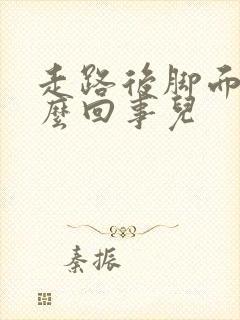 走路後脚而
麼回事兒
秦振